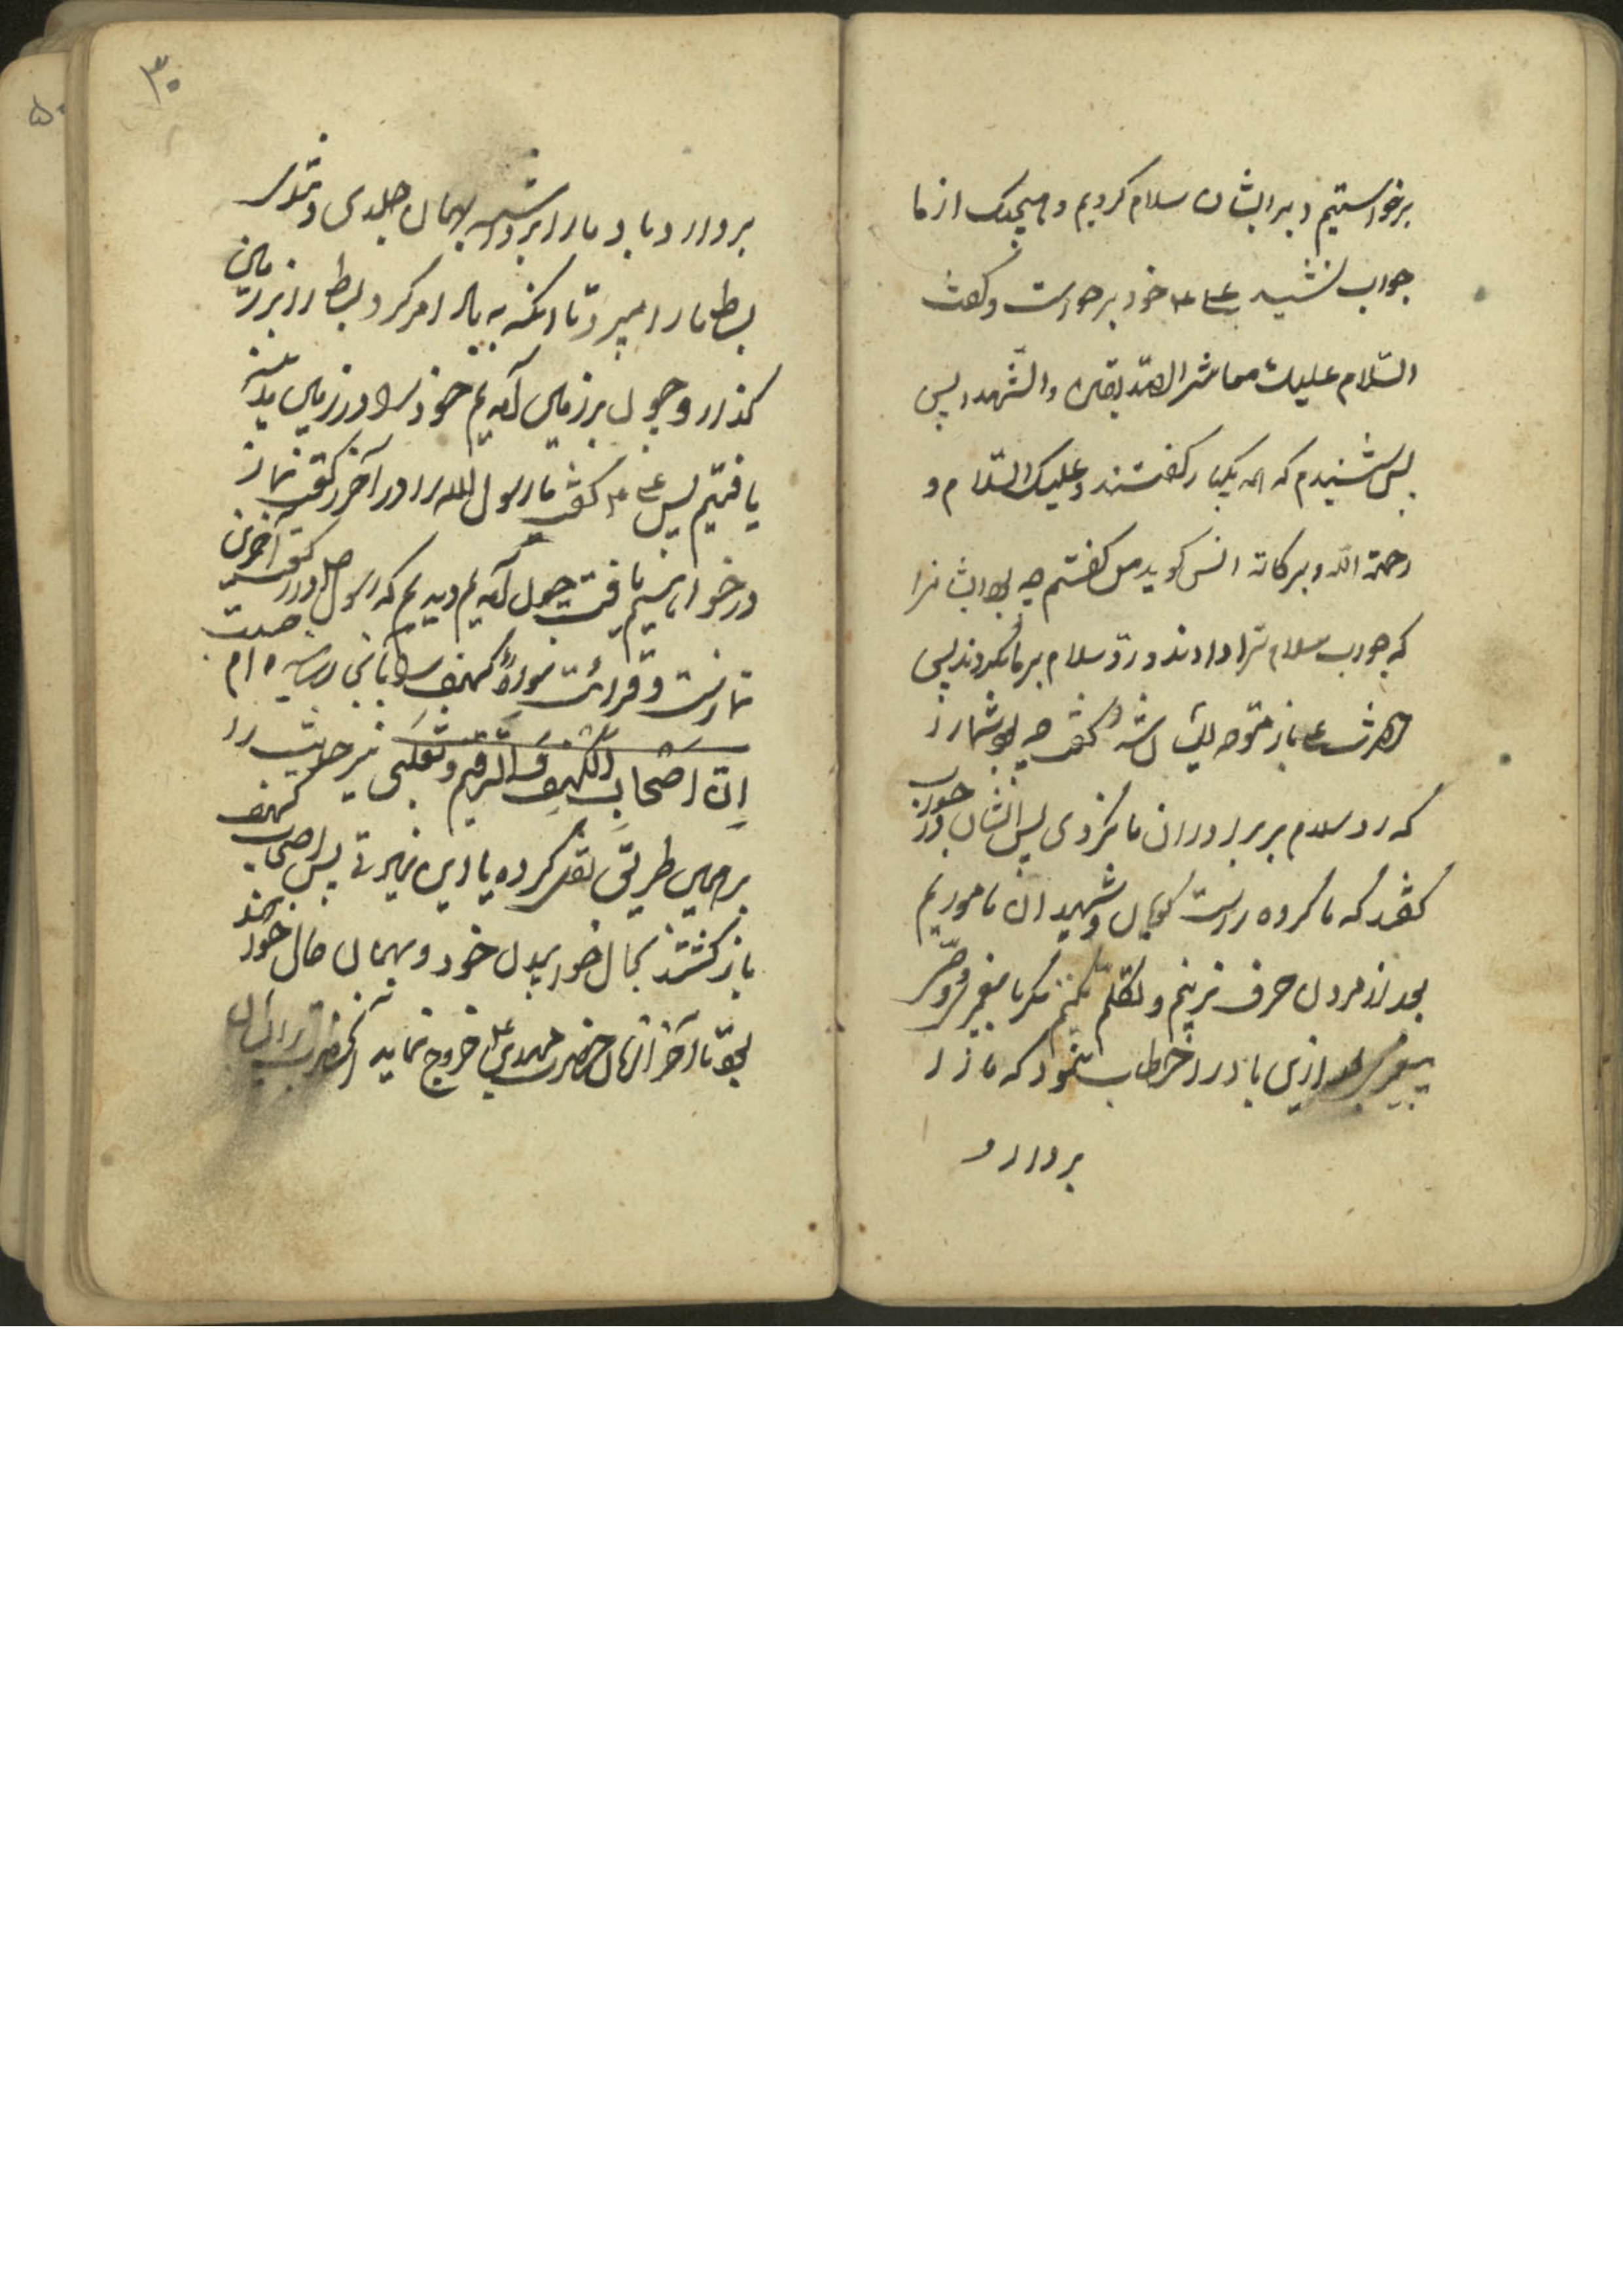 برخواستیم و بر ایشان سلام کردیم و هیچیک از ما
جواب نشنید علی ع خود برخواست و گفت
السّلام علیک معاشر الصّدیقین والشّهدا پس
پس شنیدم که همه یکبار گفتند و علیک السّلام و
رحمة الله و برکاته انس گوید من گفتم چه بود ایشانرا
که جواب سلام ترا دادند و ردّ سلام بر ما نکردند پس
حضرت ع باز متوجه ایشان شد گفت چه بود شما را
که رد سلام بر برادران ما نکردی پس ایشان در جواب
گفتند که ما گروه راست گویان و شهیدان ماموریم
بعد از مردن حرف نزنیم و تکلّم نکنیم مگر با پیغمبر و وصیّ
پیغمبر بعد ازین باد را خطاب نمود که ما را
بردارد
۳۰
بردارد باد ما را برداشته بهمان جلدی و تندی
بساط ما را میبرد تا آنکه به باد امر کرد بساط را بر زمین
گذارد و چون بر زمین آمدیم خود را در زمین مدینه
یافتیم پس علی ع گفت ما رسول الله را در آخر رکعت نماز
در خواهیم یافت چون آمدیم دیدیم که رسول ص در رکعت آخرین
نماز است و قرائت سورهٔ کهف را باینجا رسیده ام حسبت
اِنّ اَصْحابَ الْکَهْفِ وَالرَّقیم و ثعلبی نیز حدیث را
بر همین طریق نقل کرده با این زیادتی پس اصحاب کهف
باز گشتند بحال خوابیدن خود و بهمان حال خود هستند
بوقتا آخر الزمان حضرت مهدی ع خروج نماید آنحضرت بر ایشان
۵۰